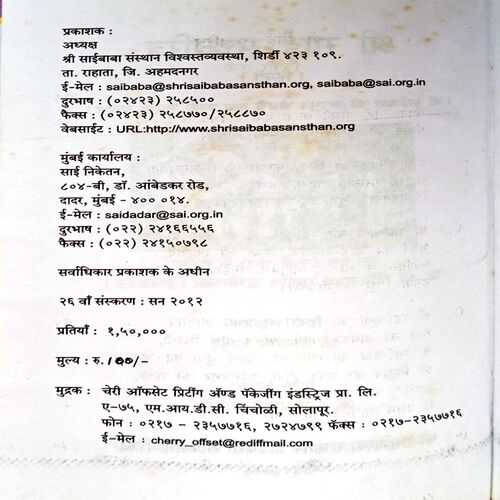 प्रकाशक :
अध्यक्ष
श्री साईबाबा संस्थान विश्वस्तव्यवस्था, शिर्डी ४२३ १०९.
ता. राहाता, जि. अहमदनगर
ई-मेल : saibaba@shrisaibabasansthan.org, saibaba@sai.org.in
दुरभाष : (०२४२३) २५८५००
फैक्स : (०२४२३) २५८७७०/२५८८७०
वेबसाईट : URL:http://www.shrisaibabasansthan.org
मुंबई कार्यालय :
साई निकेतन,
८०४-बी, डॉ. आंबेडकर रोड,
दादर, मुंबई - ४०० ०१४.
ई-मेल : saidadar@sai.org.in
दुरभाष : (०२२) २४१६६५५६
फैक्स : (०२२) २४१५०७९८
सर्वाधिकार प्रकाशक के अधीन
२६ वाँ संस्करण : सन २०१२
प्रतियाँ : १,५०,०००
मुल्य : रु.100/-
मुद्रक : चेरी ऑफसेट प्रिटींग ॲण्ड पॅकेजींग इंडस्ट्रिज प्रा. लि.
ए-७५, एम.आय.डी.सी. चिंचोळी, सोलापूर.
फोन : ०२१७ - २३५७७१६, २७२४७९९ फॅक्स : ०२१७-२३५७७१६
ई-मेल : cherry_offset@rediffmail.com